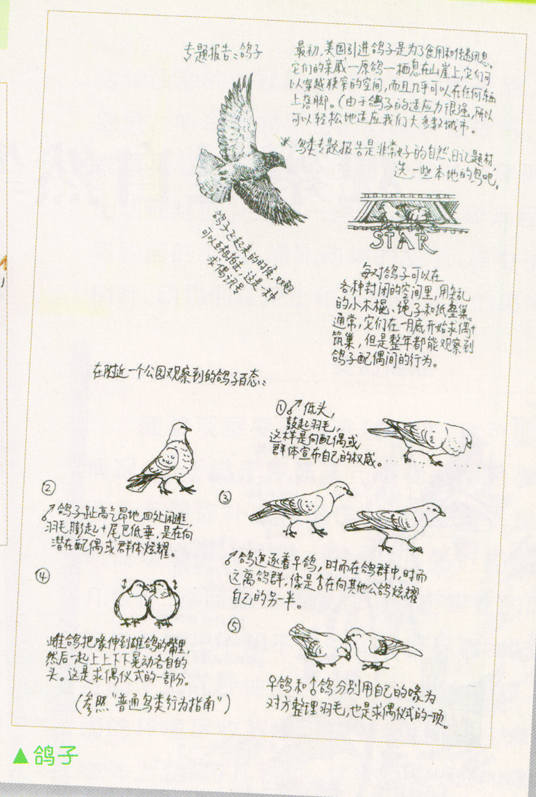 专题报告：鸽子
最初，美国引进鸽子是为了食用和传递讯息。
它们的亲戚—原鸽—栖息在山崖上，它们可
以穿越狭窄的空间，而且几乎可以在任何东西
上落脚。（由于鸽子的适应力很强，所以
可以轻松地适应我们大多数城市。
※ 鸟类专题报告是非常好的自然日记题材
选一些本地的鸟吧
鸽子飞起来的时候，双翅
可以互相拍击，这是一种
求偶讯号
STAR
每对鸽子可以在
各种封闭的空间里，用杂乱
的小木棍、绳子和纸垫巢。
通常，它们在一月底开始求偶+
筑巢，但是整年都能观察到
鸽子配偶间的行为。
在附近一个公园观察到的鸽子百态：
①♂低头，
鼓起羽毛，
这样是向配偶或
群体宣布自己的权威。
②
♂鸽子趾高气昂地四处闲逛，
羽毛膨起+尾巴低垂，是在向
潜在配偶或群体炫耀。
③
♂鸽追逐着♀鸽，时而在鸽群中，时而
远离鸽群，像是♂在向其他公鸽炫耀
自己的另一半。
④
雌鸽把喙伸到雄鸽的嘴里，
然后一起上上下下晃动各自的
头。这是求偶仪式的一部分。
（参照“普通鸟类行为指南”）
⑤
♀鸽和♂鸽分别用自己的喙为
对方整理羽毛，也是求偶仪式的一项。
▲鸽子